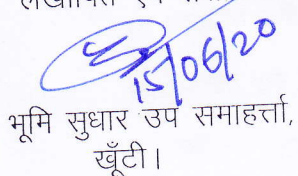 15/06/20
भूमि सुधार उप समाहर्त्ता,
खूँटी।